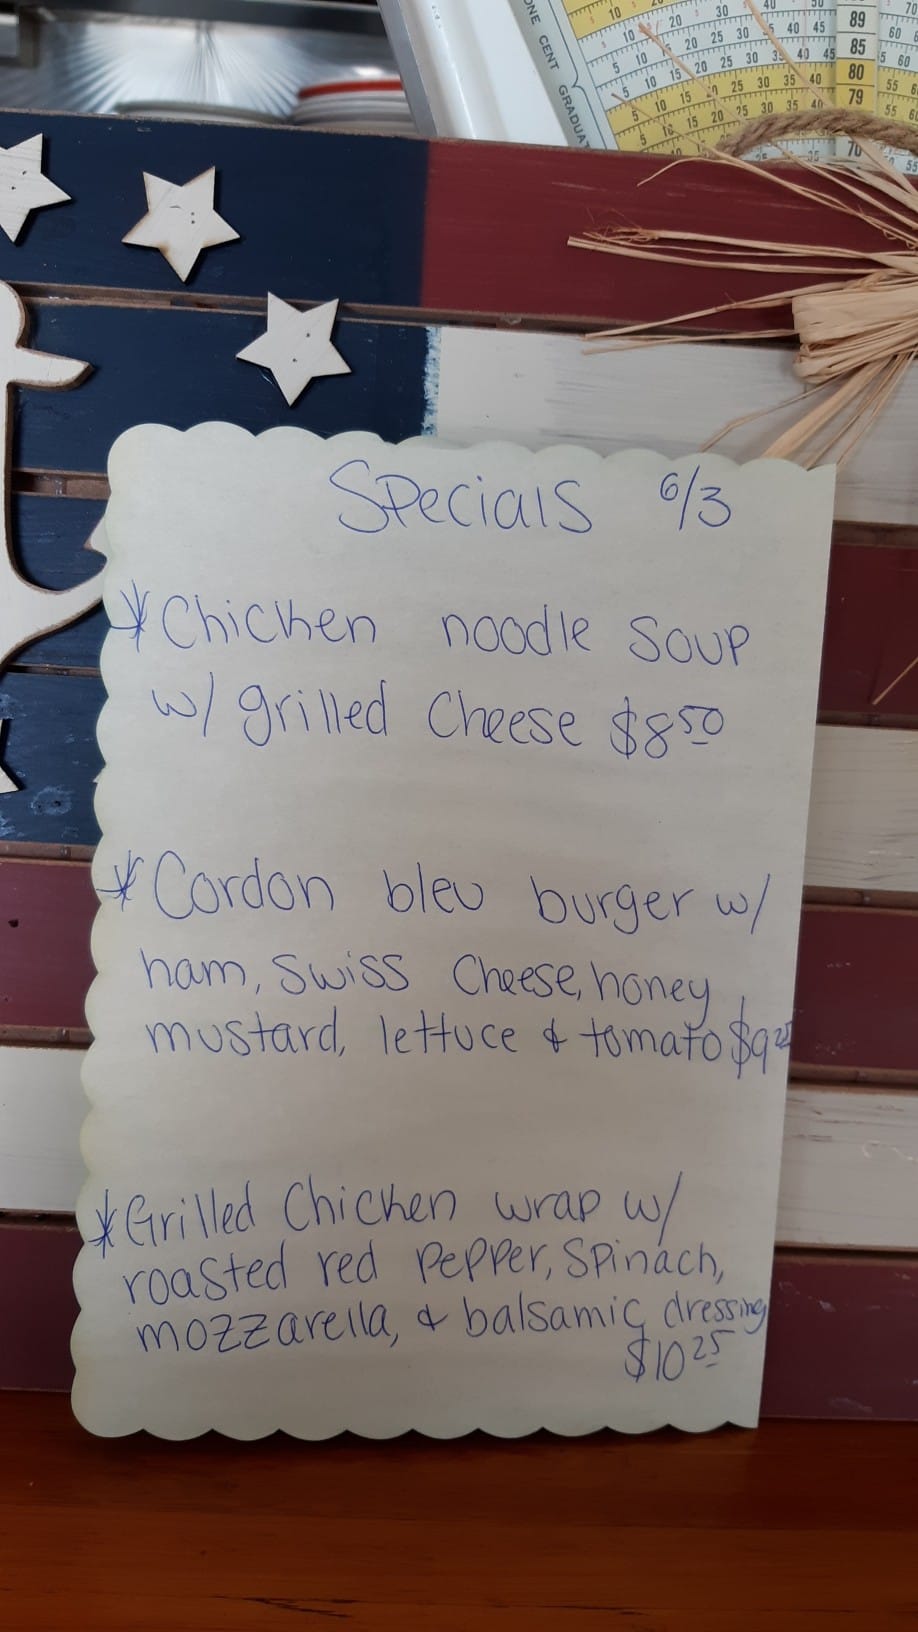 ONE CENT GRADUAT
89
85
80
79
70
Specials 6/3
* Chicken noodle soup
w/ grilled cheese $8.50
* Cordon bleu burger w/
ham, swiss cheese, honey
mustard, lettuce & tomato $9.25
* Grilled Chicken wrap w/
roasted red pepper, spinach,
mozzarella, & balsamic dressing
$10.25